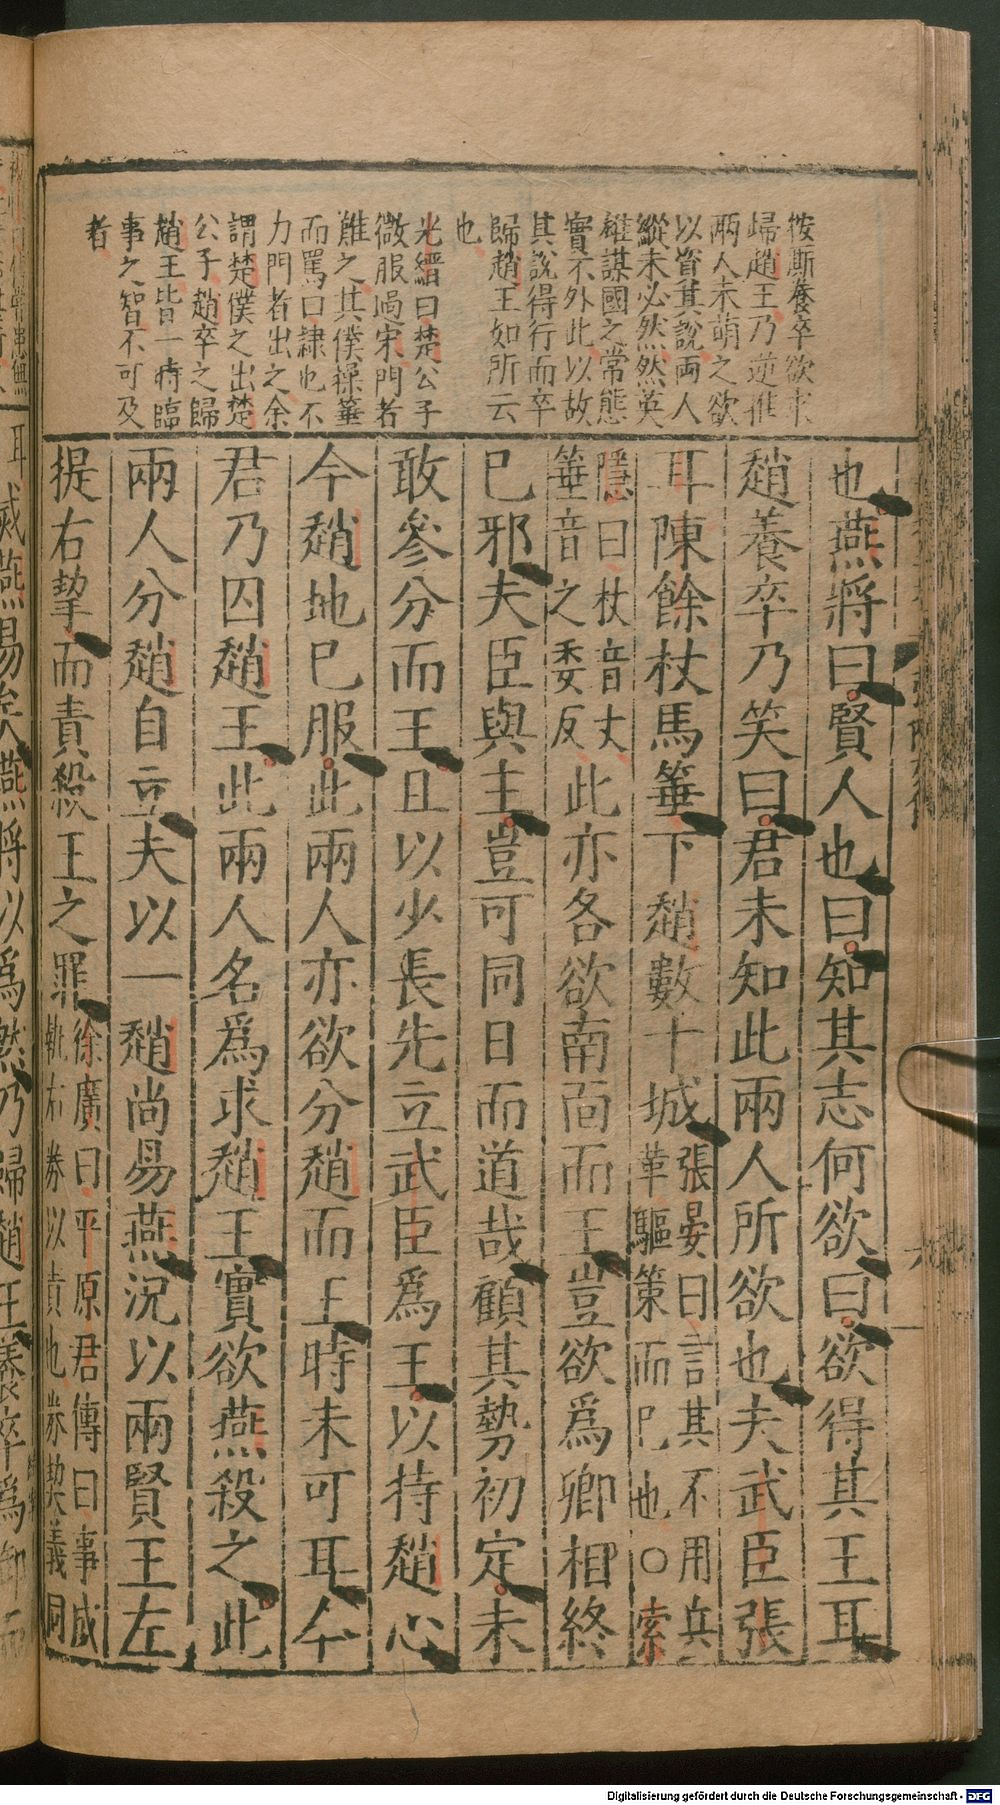 按廝養卒欲求
歸趙王乃逆推
兩人未萌之欲
以資其說兩人
縱未必然然英
雄謀國之常態
實不外此以故
其說得行而卒
歸趙王如所云
也
光縉曰楚公子
微服過宋門者
難之其僕操箠
而罵曰隸也不
力門者出之余
謂楚僕之出楚
公子趙卒之歸
趙王皆一時臨
事之智不可及
者
也燕將曰賢人也曰知其志何欲曰欲得其王耳
趙養卒乃笑曰君未知此兩人所欲也夫武臣張
耳陳餘杖馬箠下趙數十城張晏曰言其不用兵
革驅策而已也○索
隱曰杖音丈
箠音之委反此亦各欲南面而王豈欲爲卿相終
已邪夫臣與主豈可同日而道哉顧其勢初定未
敢參分而王且以少長先立武臣爲王以待趙心
今趙地已服此兩人亦欲分趙而王時未可耳今
君乃囚趙王此兩人名爲求趙王實欲燕殺之此
兩人分趙自立夫以一趙尚易燕況以兩賢王左
提右挈而責殺王之罪徐廣曰平原君傳曰事成
執右券以責也券契義同
耳滅燕易矣燕將以爲然乃歸趙王養卒爲御而
Digitalisierung gefördert durch die Deutsche Forschungsgemeinschaft - DFG